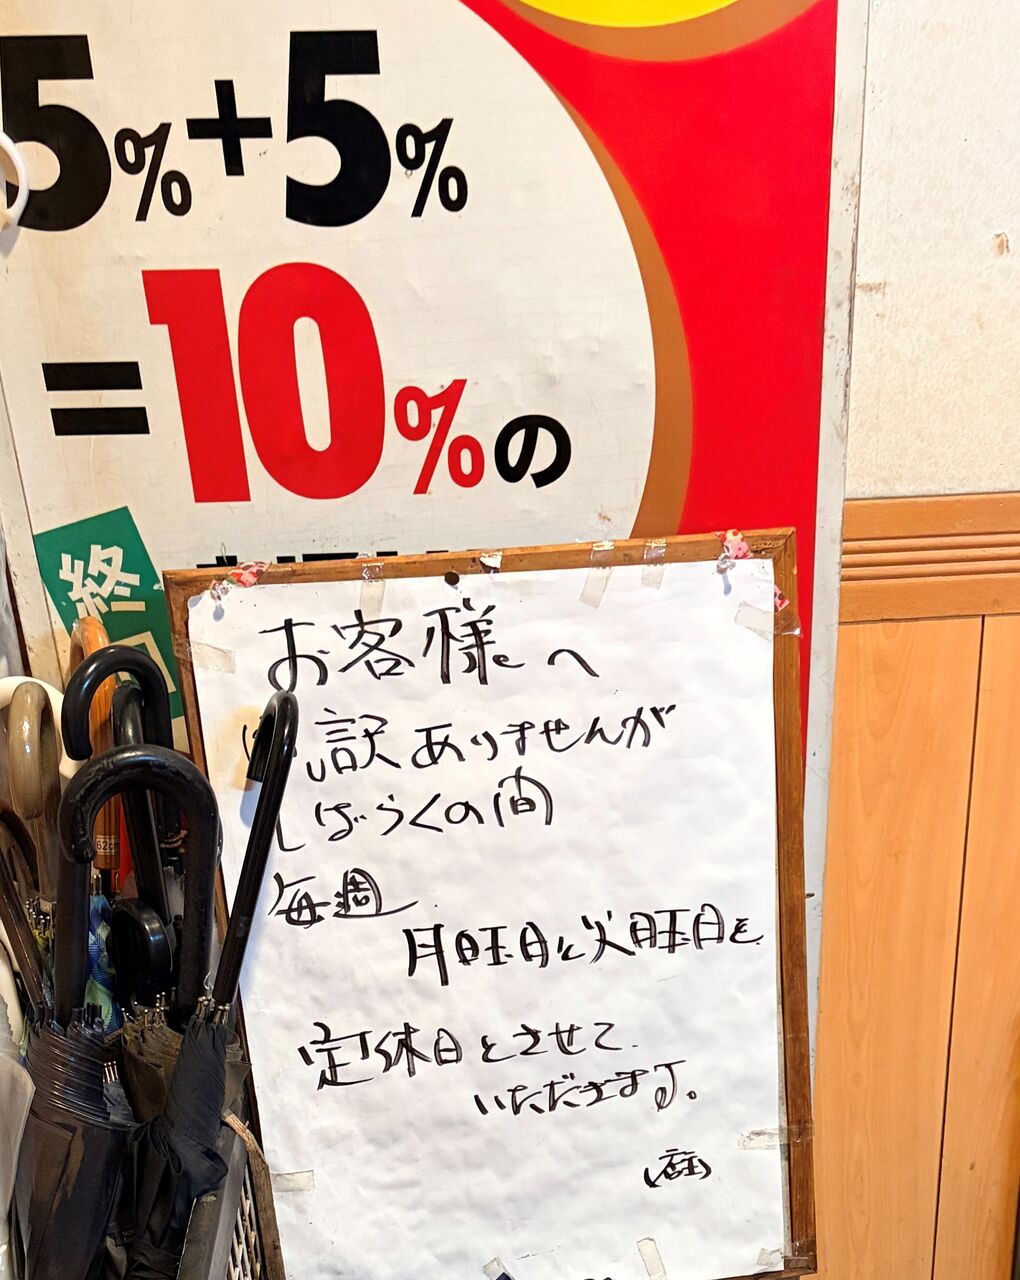 5%+5%
=10%の
終
お客様へ
訳ありませんが
しばらくの間
毎週
月曜日と火曜日を
定休日とさせて
いただきます。
(店主)
62cm